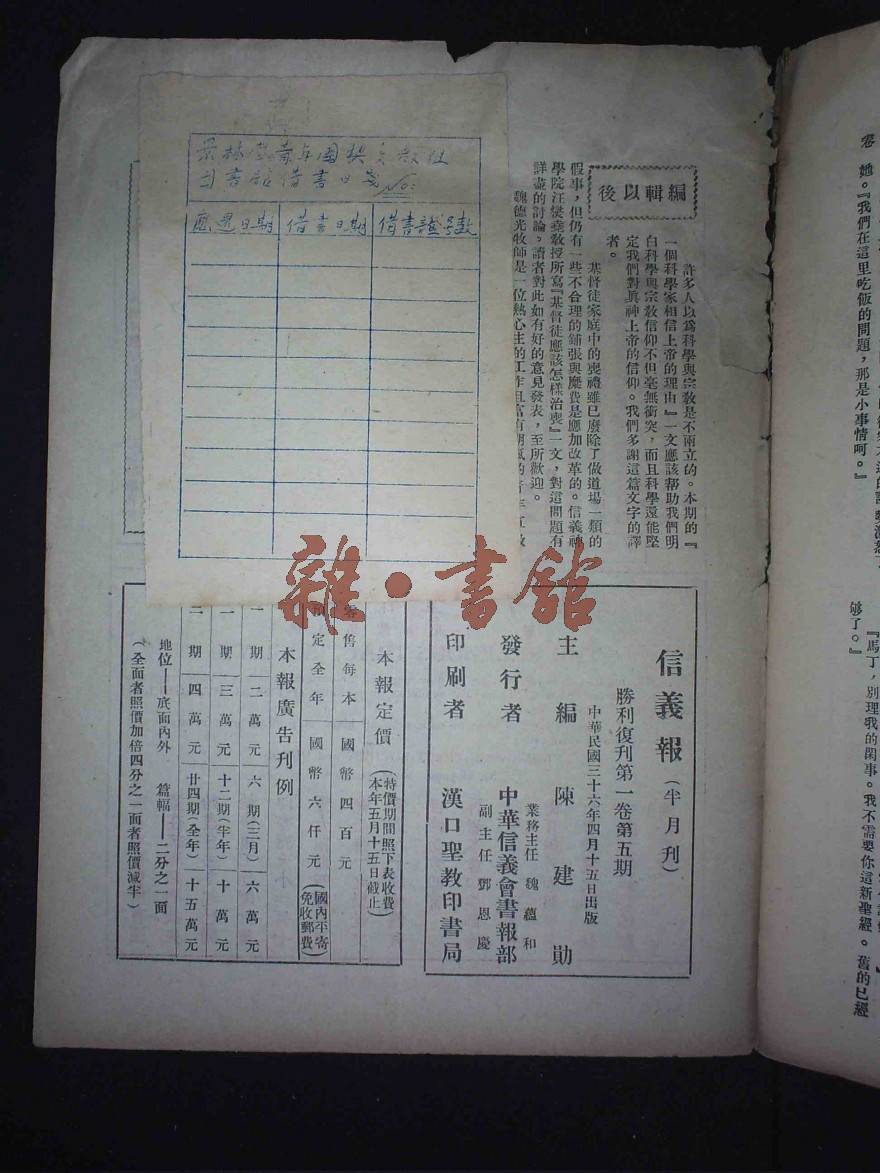 後以輯編
許多人以為科學與宗教是不兩立的。本期的『
一個科學家相信上帝的理由』一文應該帮助我們明
白科學與宗教信仰不但毫無衝突，而且科學還能堅
定我們對眞神上帝的信仰。我們多謝這篇文字的譯
者。
基督徒家庭中的喪禮雖已廢除了做道場一類的
假事，但仍有一些不合理的鋪張與糜費是應加改革的。信義神
學院汪燮堯敎授所寫『基督徒應該怎樣治喪』一文，對這問題有
詳盡的討論。讀者對此如有好的意見發表，至所歡迎。
魏德光牧師是一位熱心主的工作且富有
借書日期
借書證号數
信義報（半月刊）
勝利復刊第一卷第五期
中華民國三十六年四月十五日出版
主編 陳建勛
業務主任 魏蘊和
發行者 中華信義會書報部
副主任 鄧恩慶
印刷者 漢口聖教印書局
本報定價（特價期間照下表收費本年五月十五日截止）
零售每本 國幣四百元
定全年 國幣六仟元（國內平寄免收郵費）
本報廣告刊例
一期 二萬元 六期（三月） 六萬元
一期 三萬元 十二期（半年） 十萬元
二期 四萬元 廿四期（全年） 十五萬元
地位——底面內外 篇幅——二分之一面
（全面者照價加倍四分之一面者照價減半）
她。『我們在這里吃飯的問題，那是小事情呵。』
『馬丁，別理我的閑事。我不需要你這新聖經。舊的已經
够了。』
雜·書館